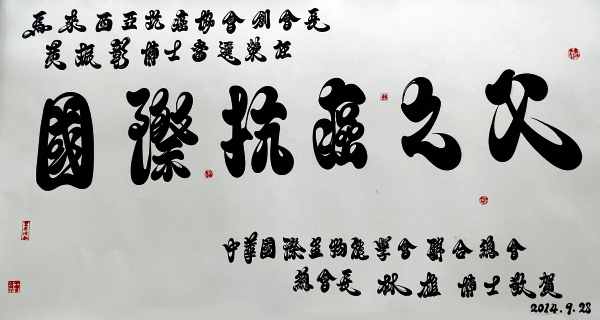 馬來西亞抗癌協會創會長
黃振彰博士當選榮任
國際抗癌之父
中華國際生物能學會聯合總會
總會長 林雄 博士敬賀
2014.9.28